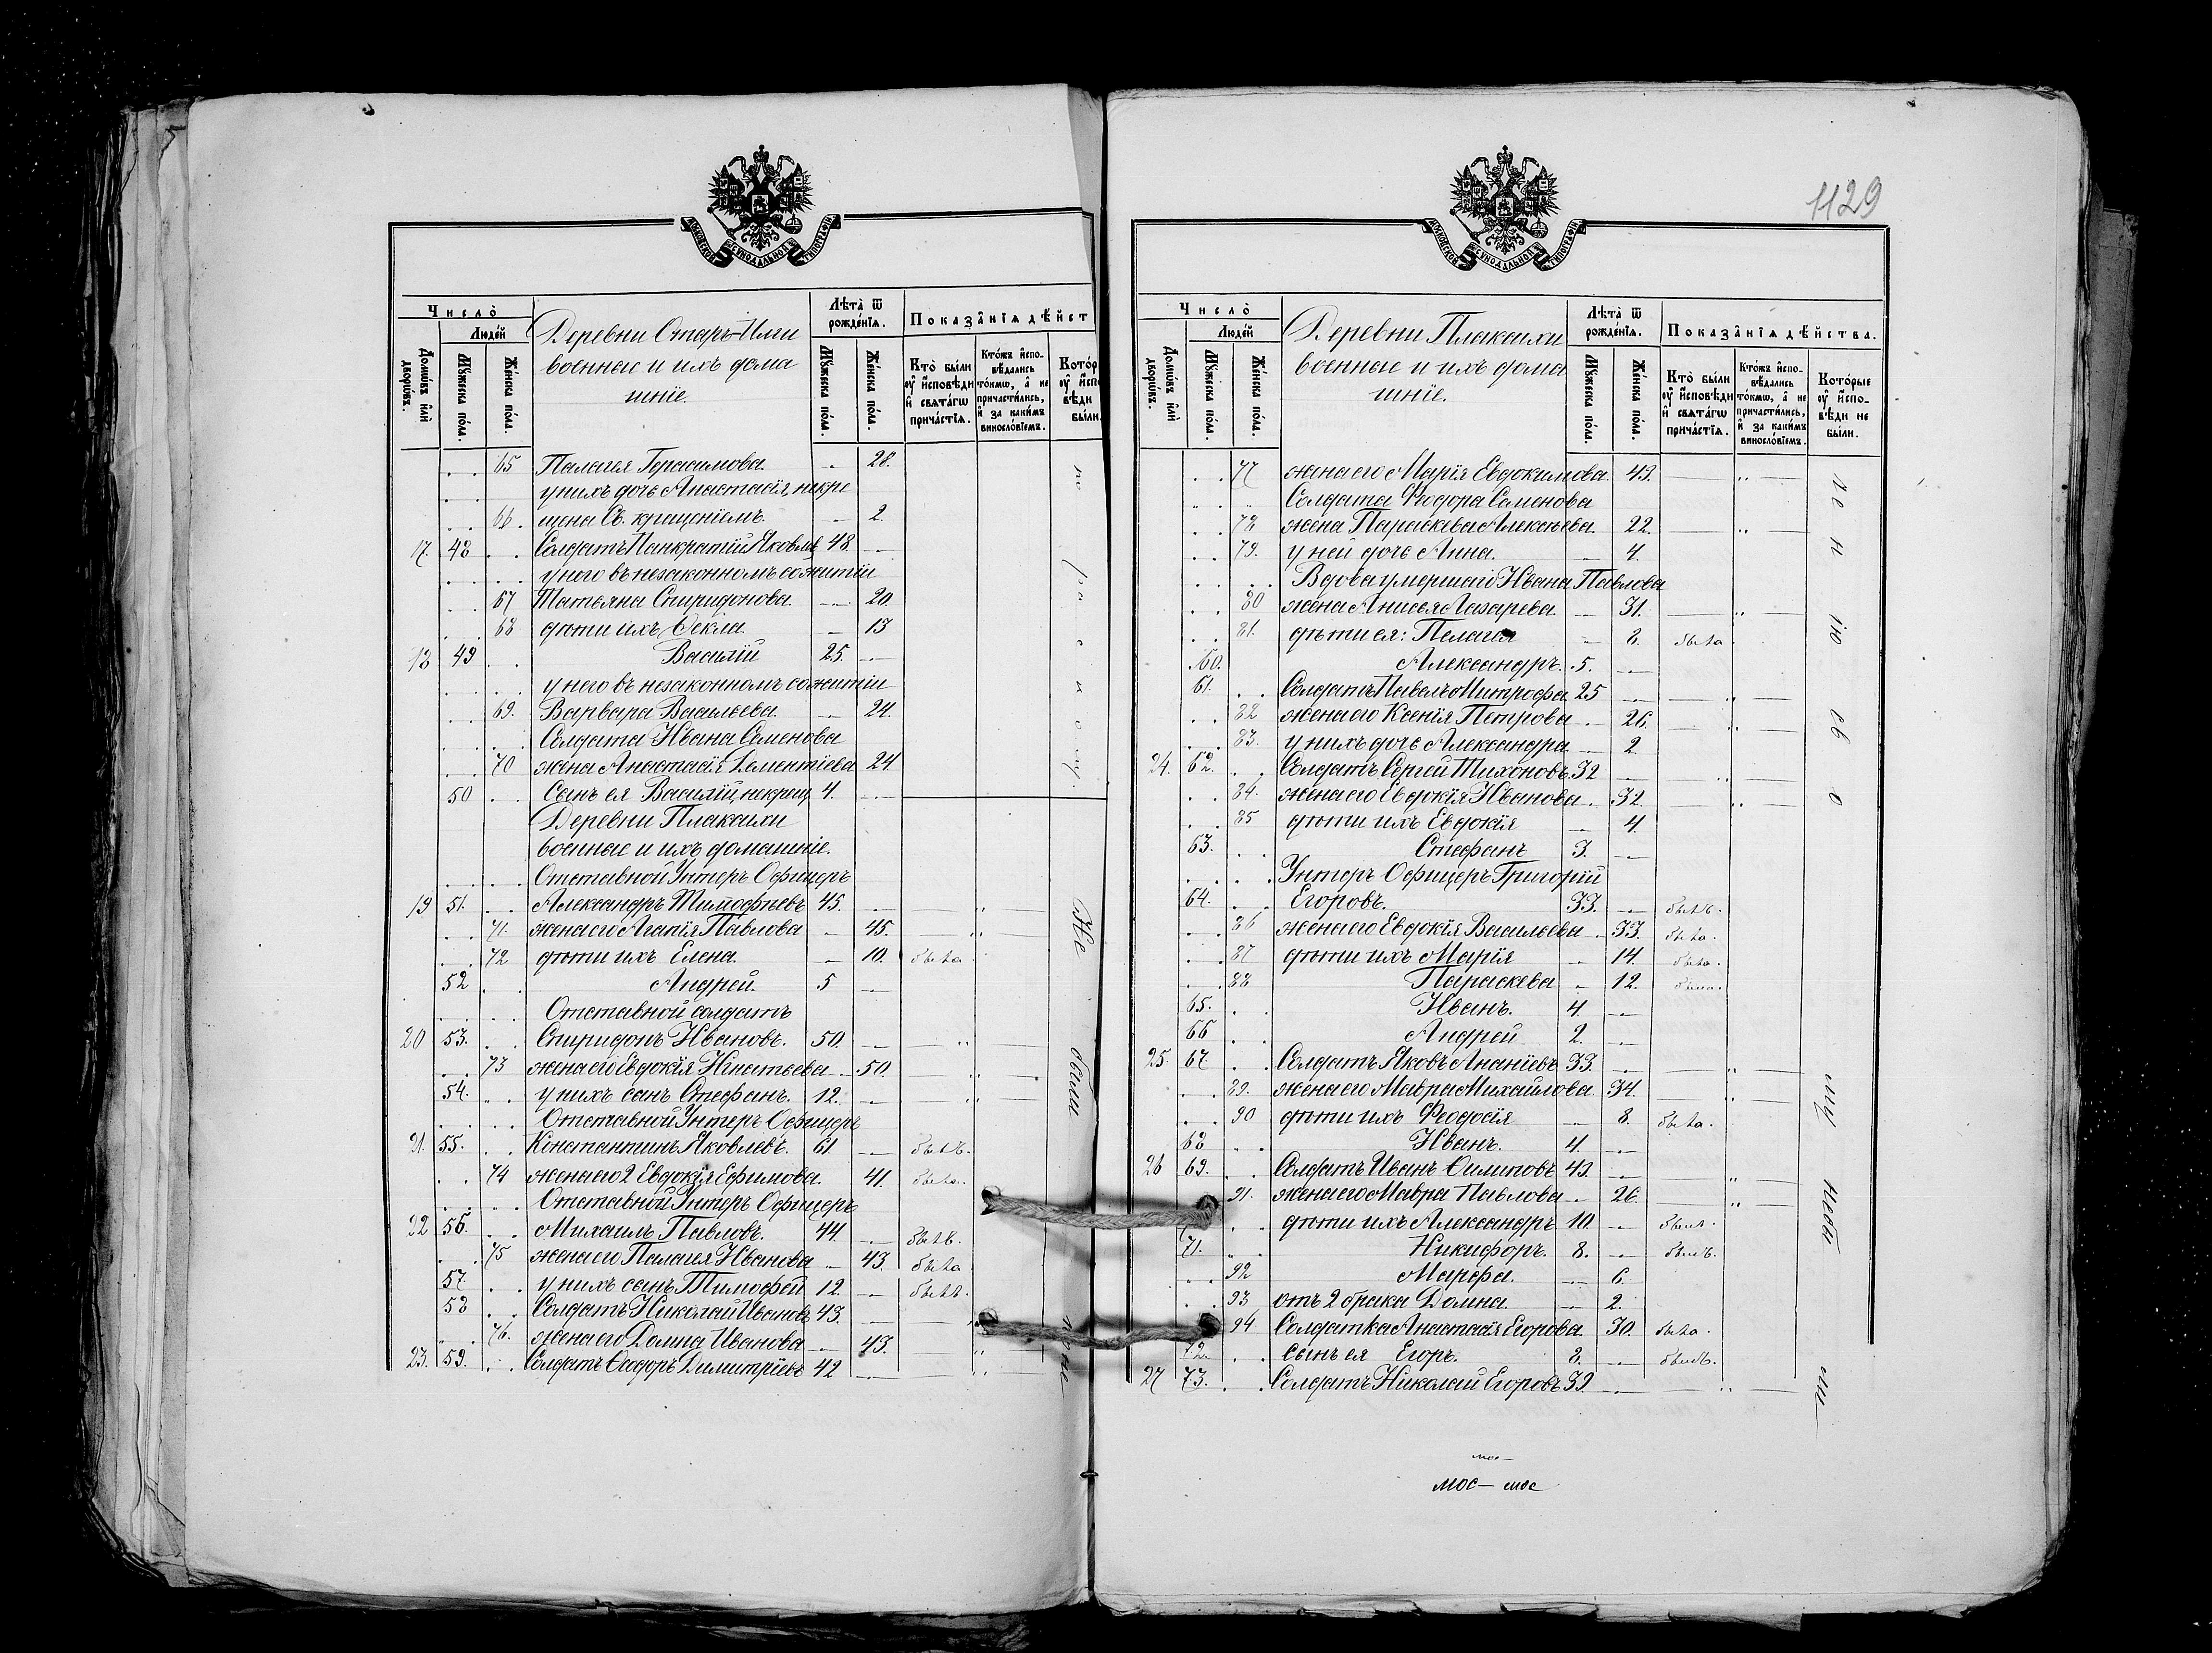 МОСКОВСКОЙ СѴНОДАЛЬНОЙ ТИПОГРАФІИ
Число̀
Людей
Домѡвъ и҆лѝ дворѡвъ.
Мꙋжеска пола.
Женска пола.
Деревни Старъ-Илги
военные и ихъ дома
шніе.
Лѣта̀ ѿ рожденїѧ.
Мꙋжеска пола.
Женска пола.
Показанїѧ дѣйст
Кто̀ были ᲂу҆ и҆сповѣди и҆ свѧтагѡ причастїѧ.
Ктожъ и҆сповѣдались токмѡ, а҆ не причастились, и҆ за какимъ винословїемъ.
Котор ᲂу҆ и҆спо вѣди были.
65 Палагея Герасимова. 28.
у нихъ дочь Анастасія, некре
66. щена Св. крещеніемъ. 2.
17. 48 Солдатъ Панкратій Яковлв 48.
у него въ незаконномъ сожитіи
67 Татьяна Спиридонова. 20.
68 дѣти ихъ Ѳекла. 13
18 49 Василій 25.
у него въ незаконномъ сожитіи
69. Варвара Васильева. 24.
Солдата Ивана Семенова
70 жена Анастасія Дементіева 24
50 Сынъ ея Василій, некрещ 4.
Деревни Плакаихи
военные и ихъ домашніе.
Отставной Унтеръ Офицеръ
19 51. Александръ Тимофѣевъ 45.
71. жена его Агапія Павлова 45.
72 дѣти ихъ Елена. 10. была
52 Андрей. 5
Отставной солдатъ
20 53. Спиридонъ Ивановъ. 50.
73 жена его Евдокія Игнатьева 50.
54. у нихъ сынъ Стефанъ. 12.
Отставной Унтеръ Офицеръ
21. 55. Константинъ Яковлевъ. 61 былъ.
74 жена его 2 Евдокія Ефимова. 41. была.
Отставной Унтеръ Офицеръ
22 56. Михаилъ Павловъ. 44. былъ.
75 жена его Палагея Иванова 43. была
57. у нихъ сынъ Тимофей 12. былъ.
58 Солдатъ Николай Ивановъ 43.
76. жена его Домна Иванова 43.
23. 59. Солдатъ Ѳеодоръ Димитріевъ 42
по расколу.
Не были
1129
МОСКОВСКОЙ СѴНОДАЛЬНОЙ ТИПОГРАФІИ
Число̀
Людей
Домѡвъ и҆лѝ дворѡвъ.
Мꙋжеска пола.
Женска пола.
Деревни Плакаихи
военные и ихъ дома
шніе.
Лѣта̀ ѿ рожденїѧ.
Мꙋжеска пола.
Женска пола.
Показанїѧ дѣйства.
Кто̀ были ᲂу҆ и҆сповѣди и҆ свѧтагѡ причастїѧ.
Ктожъ и҆сповѣдались токмѡ, а҆ не причастились, и҆ за какимъ винословїемъ.
Которые ᲂу҆ и҆сповѣди не были.
77 жена его Марія Евдокимова. 43.
Солдата Ѳеодора Семенова
78 жена Параскева Алексѣева. 22.
79. у ней дочь Анна. 4.
Вдова умершаго Ивана Павлова
80 жена Анисья Лазарева. 31.
81. дѣти ея: Пелагея 8. была
60. Александръ. 5.
61. Солдатъ Павелъ Митрофа 25
82 жена его Ксенія Петрова. 26.
83. у нихъ дочь Александра 2.
24. 62. Солдатъ Сергей Тихоновъ 32
84. жена его Евдокія Иванова. 32.
85 дѣти ихъ Евдокія 4.
63. Стефанъ 3.
Унтеръ Офицеръ Григорій
64. Егоровъ. 33. былъ.
86 жена его Евдокія Васильева 33. была.
87 дѣти ихъ Марія 14. была.
88 Параскева 12. была.
65. Иванъ. 4.
66 Андрей 2.
25. 67 Солдатъ Яковъ Ананіевъ 33.
89. жена его Мавра Михайлова. 34.
90 дѣти ихъ Ѳеодосія 8. была.
68 Иванъ. 4.
26 69. Солдатъ Иванъ Филиповъ 43.
91. жена его Мавра Павлова 26.
дѣти ихъ Александръ 10. былъ.
71. Никифоръ. 8. былъ.
92 Марфа. 6.
93 отъ 2 брака Домна. 2.
94 Солдатка Анастасія Егорова. 30. была.
72. сынъ ея Егоръ. 8. былъ.
27 73. Солдатъ Николай Егоровъ 39.
мос—
мос— мос